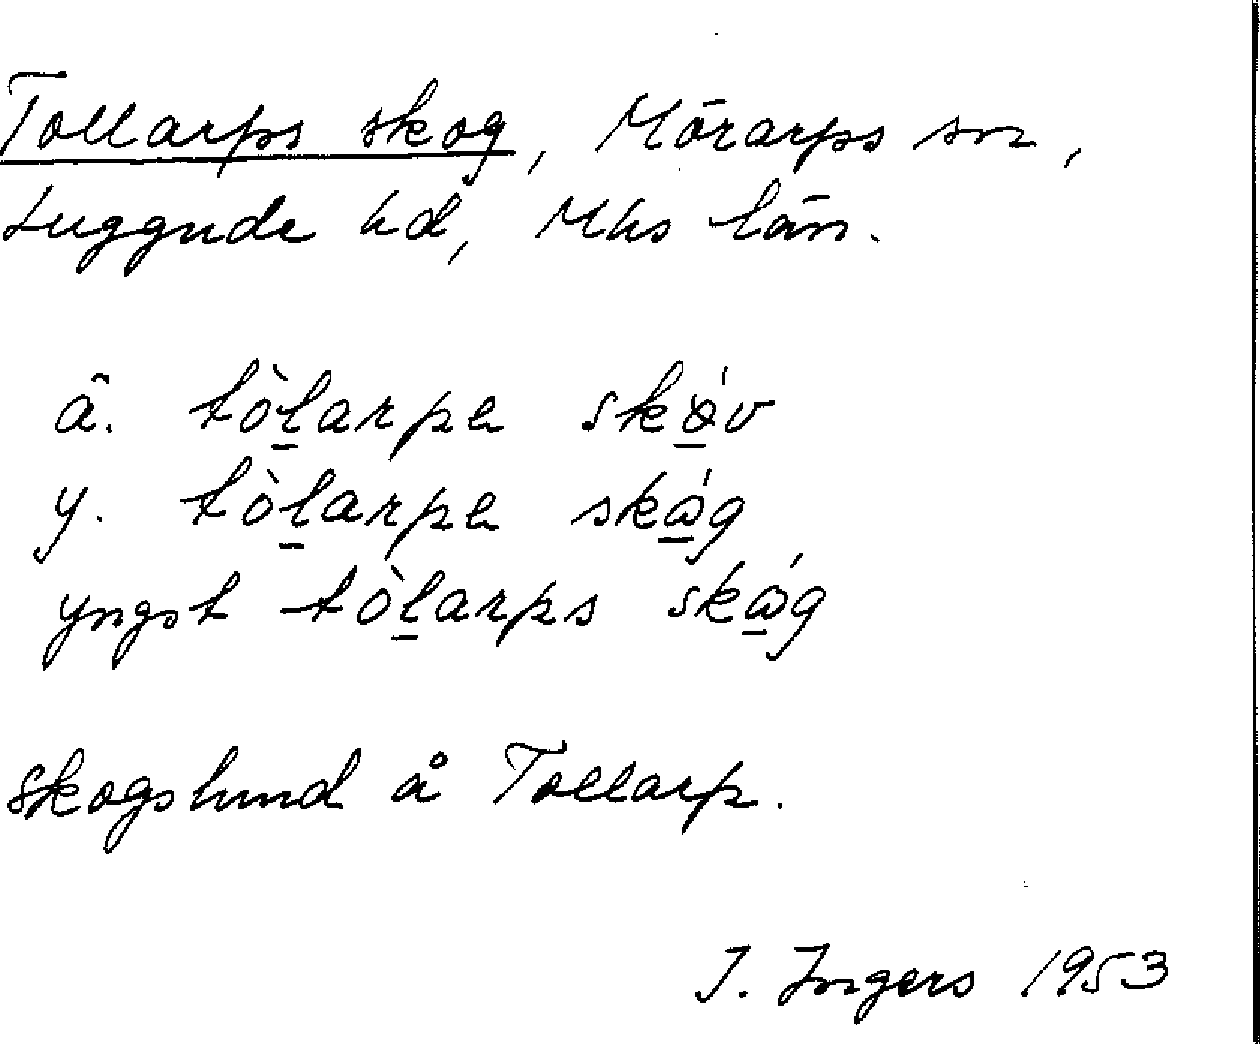 Tollarps skog, Mörarps sn,
Luggude hd, Mhs län.
ä. tòl̲arpa skǿ̲v
y. tòl̲arpa skǻ̲g
yngst tòl̲arps skǻ̲g
skogslund å Tollarp.
I. Ingers 1953